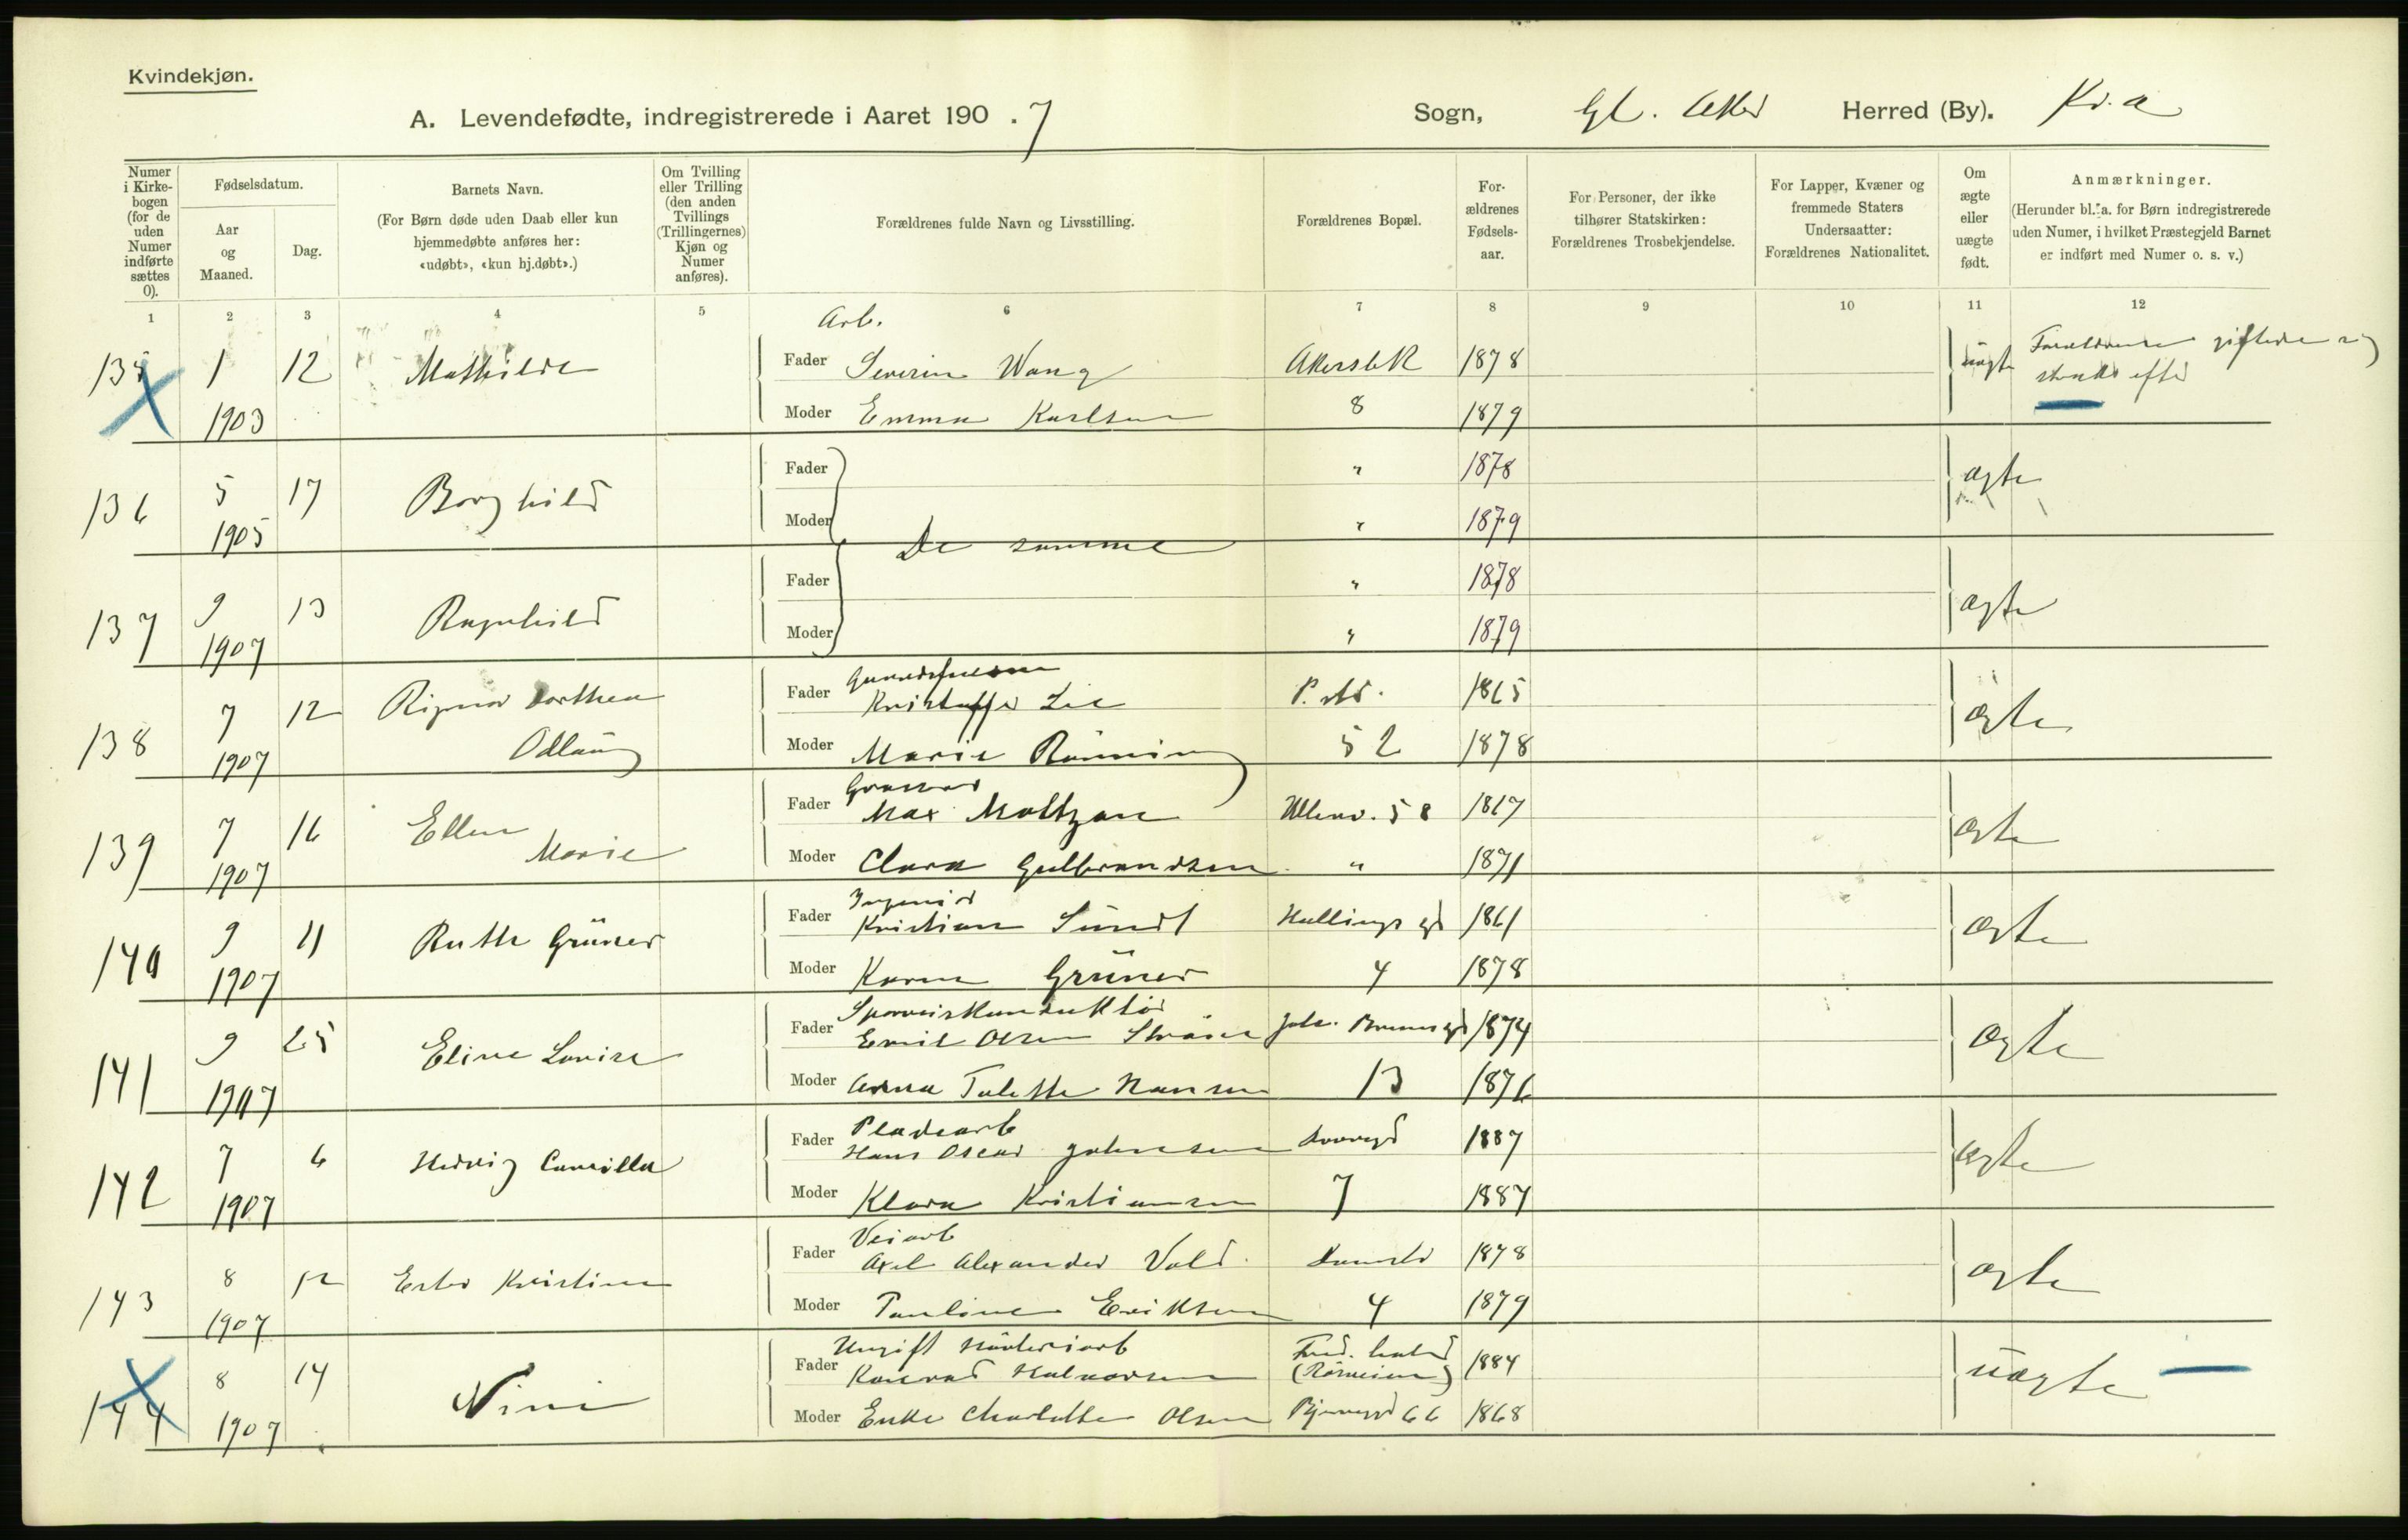 Kvindekjøn.
A. Levendefødte, indregistrerede i Aaret 190 . 7 Sogn, Gl. Aker Herred (By). Kr.a
Numer i Kirke-bogen (for de uden Numer indførte sættes 0).
Fødselsdatum.
Aar og Maaned.
Dag.
Barnets Navn.
(For Børn døde uden Daab eller kun hjemmedøbte anføres her: «udøbt», «kun hj.døbt».)
Om Tvilling eller Trilling (den anden Tvillings (Trillingernes) Kjøn og Numer anføres).
Forældrenes fulde Navn og Livsstilling.
Forældrenes Bopæl.
For-ældrenes Fødsels-aar.
For Personer, der ikke tilhører Statskirken: Forældrenes Trosbekjendelse.
For Lapper, Kvæner og fremmede Staters Undersaatter: Forældrenes Nationalitet.
Om ægte eller uægte født.
Anmærkninger.
(Herunder bl. a. for Børn indregistrerede uden Numer, i hvilket Præstegjeld Barnet er indført med Numer o. s. v.)
1 2 3 4 5 6 7 8 9 10 11 12
Arb.
135 1 12 Mathilde Fader Severin Wang Akersbk 1878 uægte Forældrene giftede sig
1903 Moder Emma Karlsen 8 1879 efter
136 5 17 Borghild Fader " 1878 ægte
1905 Moder " 1879
De samme
137 9 13 Ragnhild Fader " 1878 ægte
1907 Moder " 1879
138 7 12 Dorthea Fader Kristoffer Lie P. 1865 ægte
1907 Odlaug Moder Marie Rönning 52 1878
139 7 16 Ellen Fader Max Moltzau Ullenv. 58 1867 ægte
1907 Marie Moder Clara Gulbrandsen " 1871
Ingeniør
140 9 11 Ruth Grüner Fader Kristian Sundt Hallings gd 1861 ægte
1907 Moder Karen Grüner 4 1878
Sporveiskonduktör
141 9 25 Eline Lovise Fader Emil Olsen Joh. Bruns gd 1874 ægte
1907 Moder Anna Talette Hansen 13 1876
Pladearb
142 7 6 Hedvig Camilla Fader Hans Oscar Johnsen 1887 ægte
1907 Moder Klara Kristiansen 7 1887
Veiarb
143 8 12 Ester Kristine Fader Axel Alexander Vold 1878 ægte
1907 Moder Pauline Eriksen 4 1879
Ungift
144 8 14 Nini Fader Konrad Halvorsen 1884 uægte
1907 Moder Enke Charlotte Olsen 66 1868